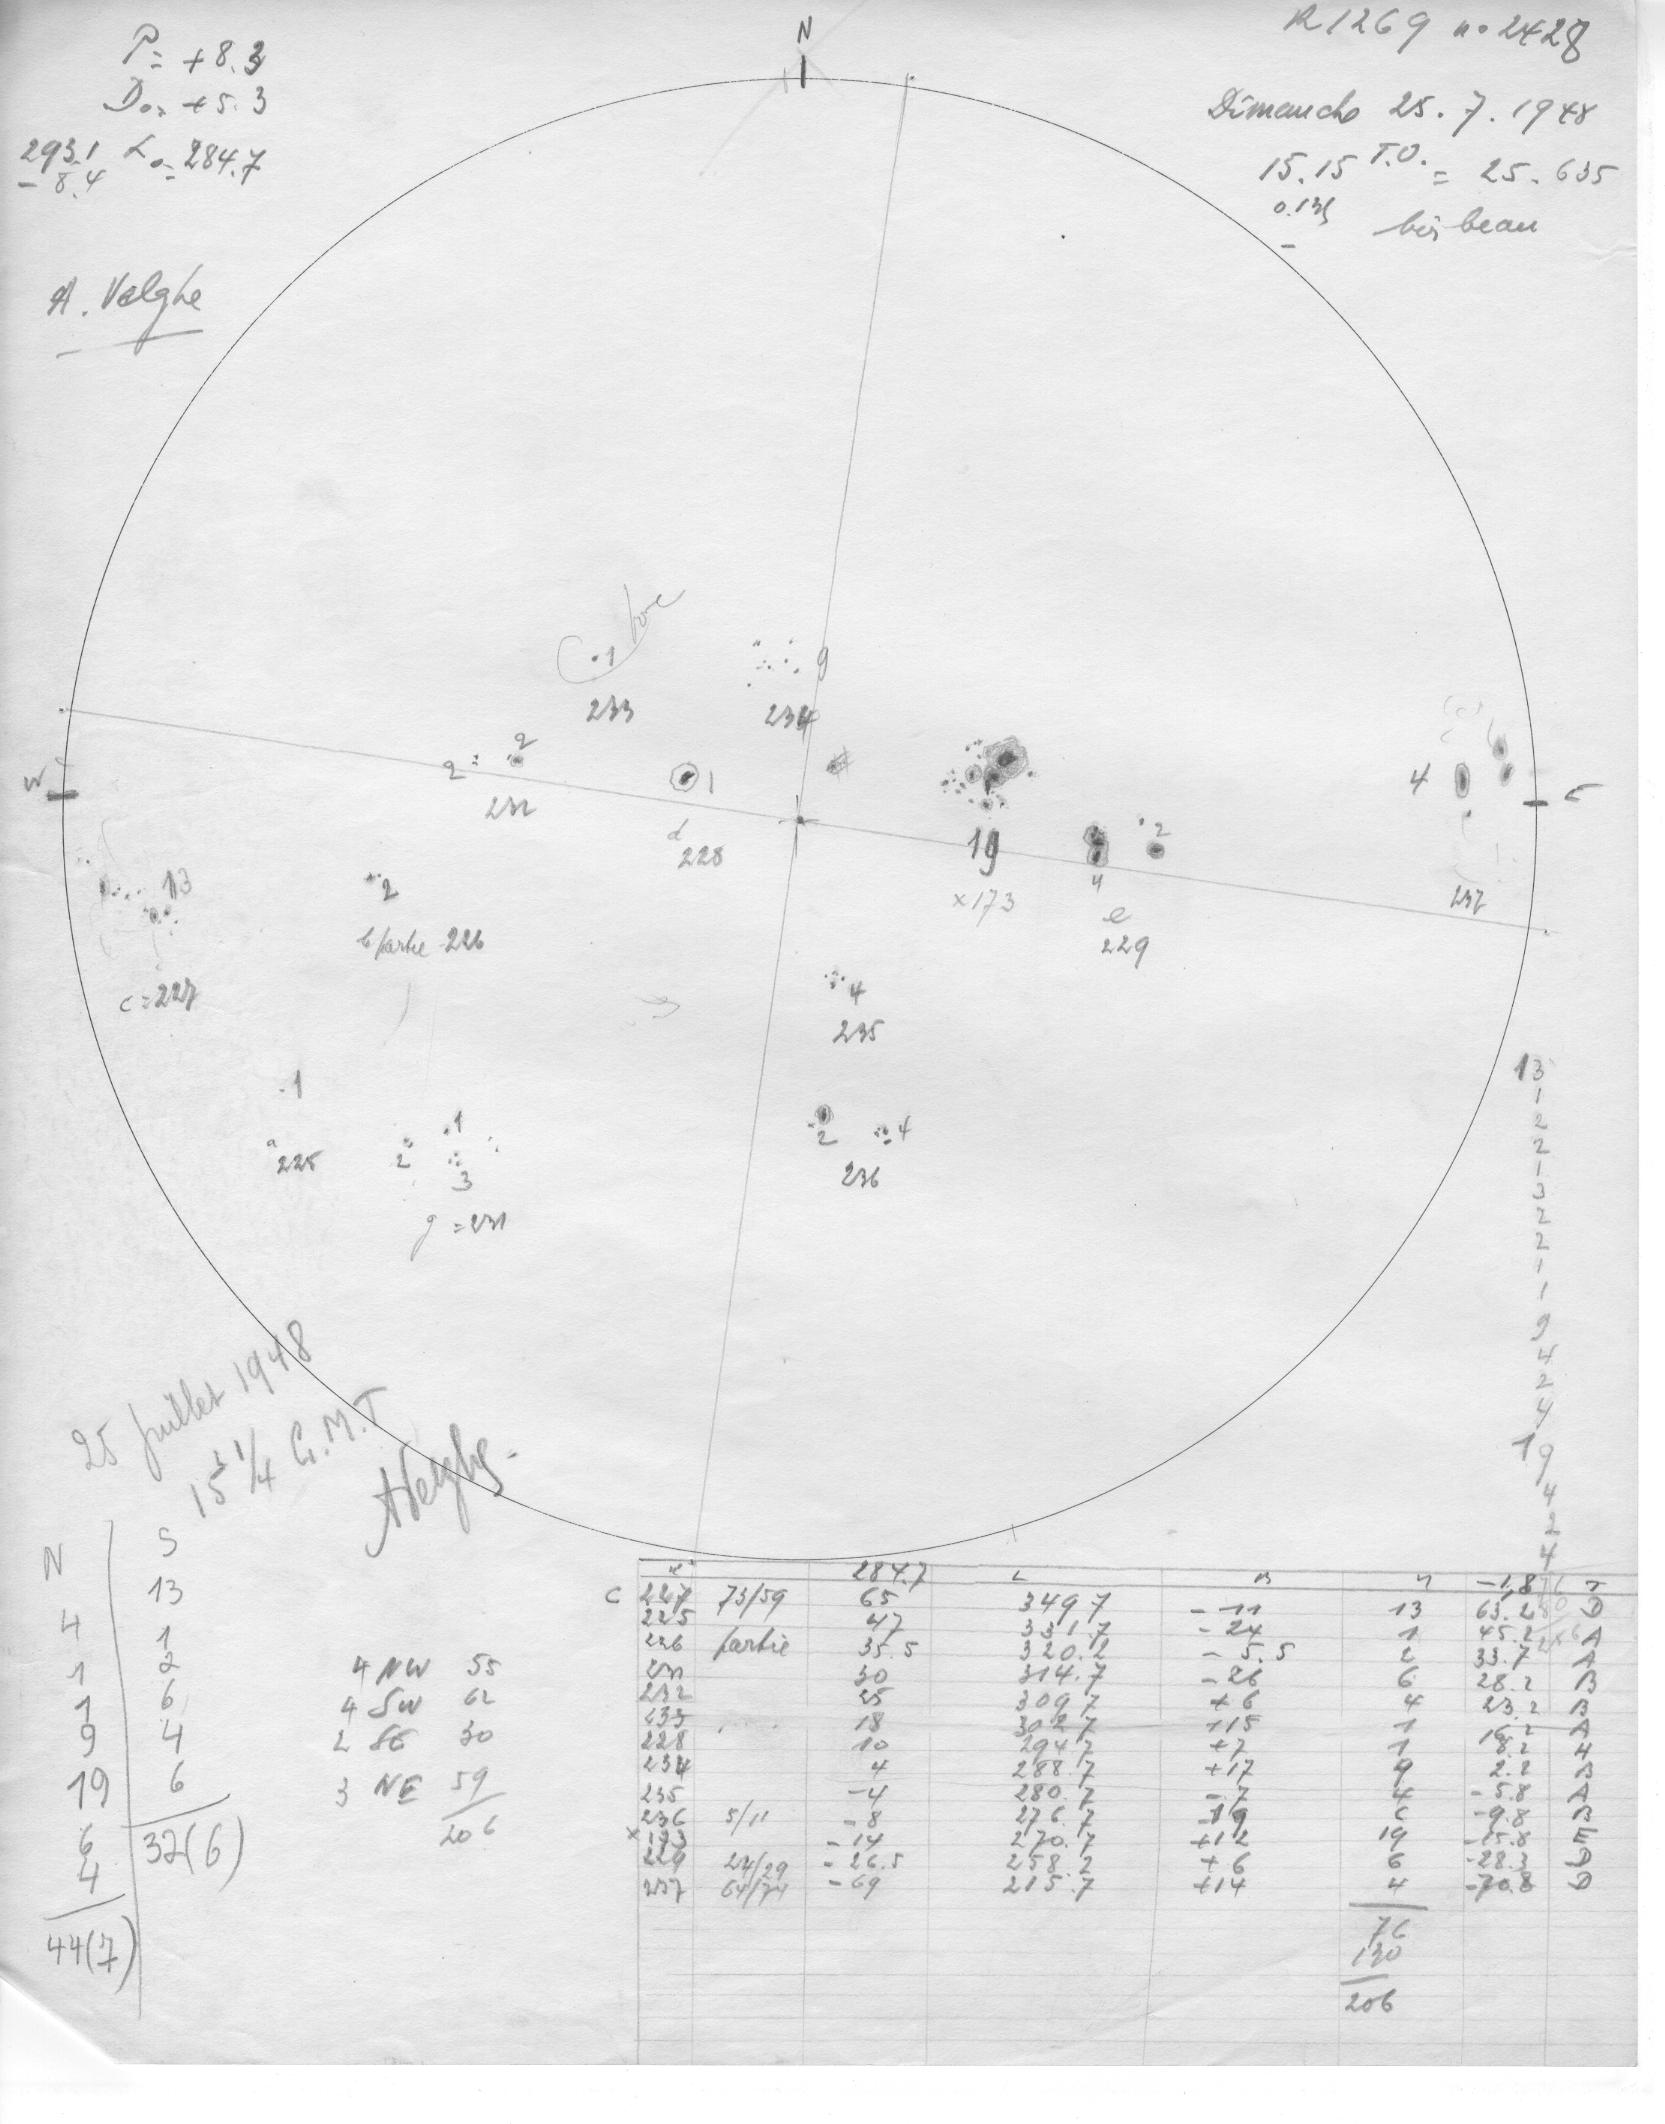 P = +8.3
Do = +5.3
293.1 Lo = 284.7
- 8.4
A. Velghe
N
R 1269 no 2428
Dimanche 25.7.1948
15.15 T.O. = 25.635
0.135
très beau
1
233
9
234
2 2
232
1
d
228
W
E
19
×173
4 2
e
229
4
237
13
c = 227
2
b partie 226
4
235
1
225
1
2
3
g = 231
2 4
236
13
1
2
2
1
3
2
2
1
1
9
4
2
4
19
4
2
4
25 juillet 1948
15 1/4 G.M.T
AVelghe
N S
4 13
1 1
1 2
9 6
19 4
6 6
4
44(7) 32(6)
4 NW 55
4 SW 62
2 SE 30
3 NE 59
206
284.7 L B -1,8 T
c 227 73/59 65 349.7 -11 13 63.2 D
225 47 331.7 -24 1 45.2 A
226 partie 35.5 320.2 -5.5 2 33.7 A
231 30 314.7 -26 6 28.2 B
232 25 309.7 +6 4 23.2 B
233 18 302.7 +15 1 16.2 A
228 10 294.7 +7 1 8.2 H
234 4 288.7 +17 9 2.2 B
235 -4 280.7 -7 4 -5.8 A
236 5/11 -8 276.7 -19 6 -9.8 B
×173 -14 270.7 +12 19 -15.8 E
229 24/29 -26.5 258.2 +6 6 -28.3 D
237 64/74 -69 215.7 +14 4 -70.8 D
76
130
206